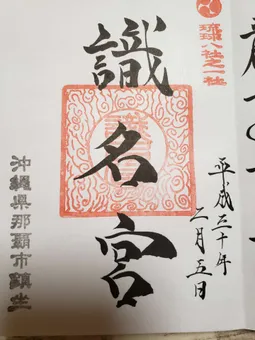 琉球八社之一社
識名宮
平成三十年
二月五日
沖縄県那覇市鎮座